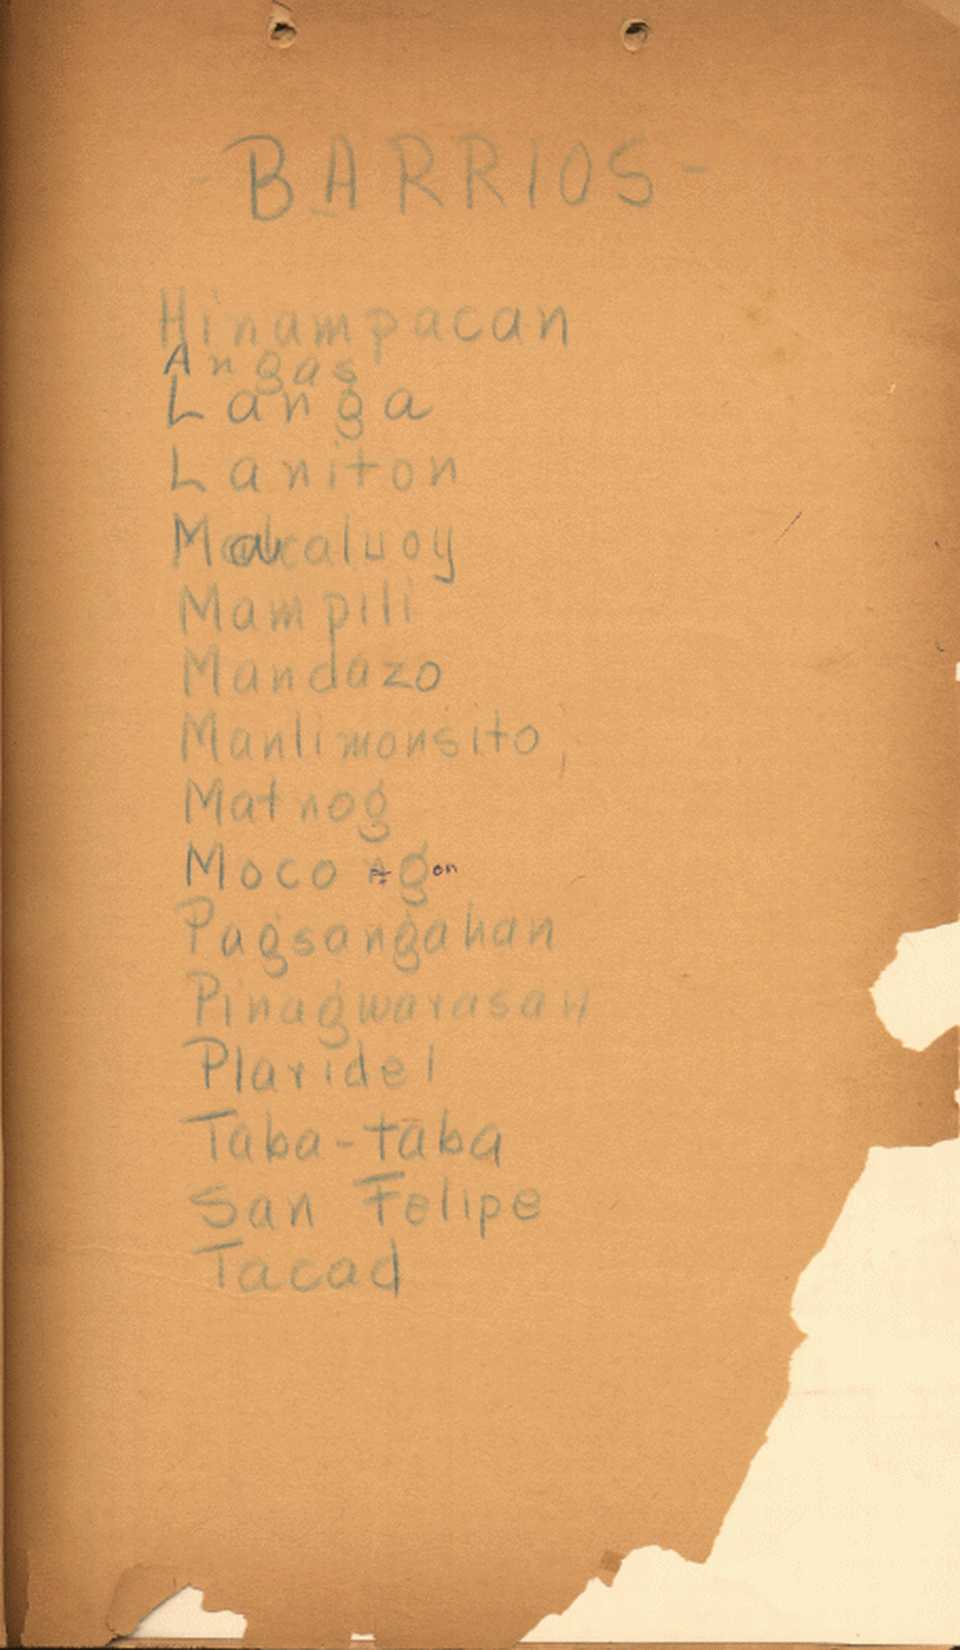 - BARRIOS -
Hinampacan
Angas
Langa
Laniton
Mampili
Mandazo
Manlimonsito,
Matnog
Pagsangahan
Pinagwarasan
Plaridel
Taba-taba
San Felipe
Tacad